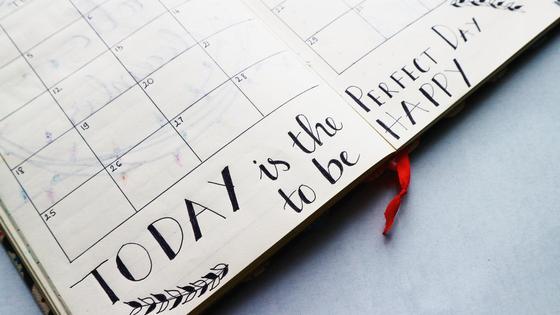 5 6
12 13 14
18 19 20 21
25 26 27 28
22
TODAY is the PERFECT DAY
to be HAPPY